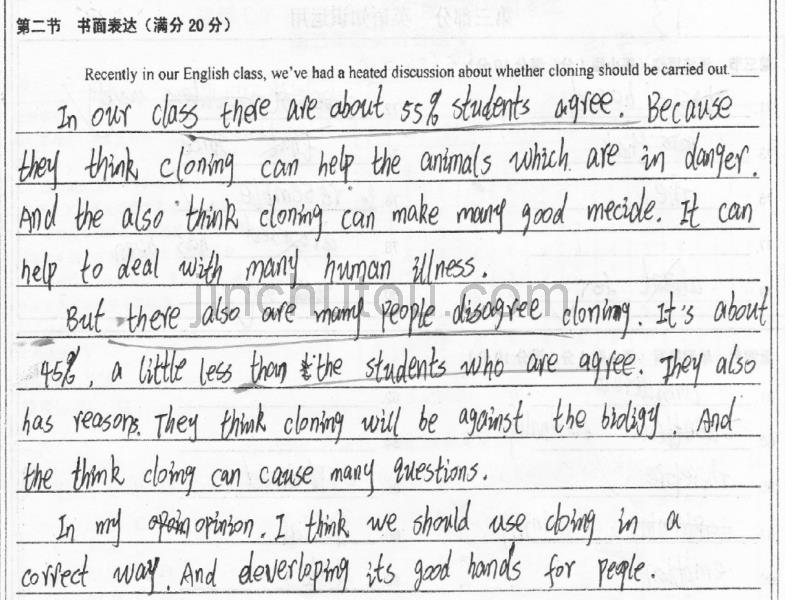 第二节 书面表达（满分20分）
Recently in our English class, we've had a heated discussion about whether cloning should be carried out.
In our class there are about 55% students agree. Because
they think cloning can help the animals which are in danger.
And the also think cloning can make many good mecide. It can
help to deal with many human illness.
But there also are many people disagree cloning. It's about
45%, a little less than the students who are agree. They also
has reasons. They think cloning will be against the bioligy. And
the think cloing can cause many questions.
In my opinion. I think we should use cloing in a
correct way. And deverloping its good hands for people.
jinchutou.com